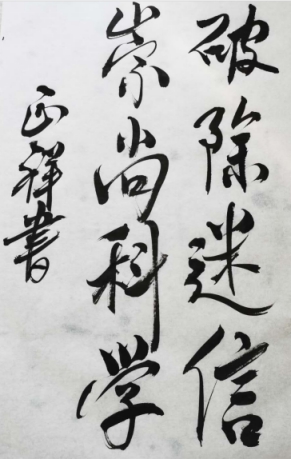 破除迷信
崇尚科学
正祥书